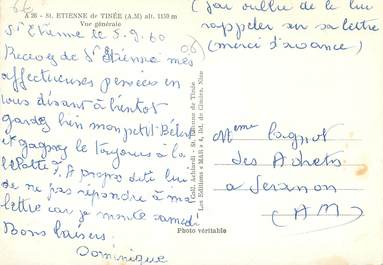 A 26 - St. ETIENNE de TINÉE (A.M) alt. 1150 m
Vue générale
St Etienne le 5.9.60
(06)
Recevez de St Etienne mes
affectueuses pensées en
vous disant à bientôt
gardez bien mon petit
et gagnez le toujours à la
A propos dite lui
de ne pas répondre à ma
lettre car je monte samedi
Bons baisers
Dominique
(j'ai oublié de le lui
rappeler sur sa lettre
(merci d'avance)
Coll. Achiardi - St. Etienne de Tinée
Les Editions « MAR » 4, Bd. de Cimiez, Nice
Mme Cagnot
des Adrets
a Seranon
(AM)
Photo véritable